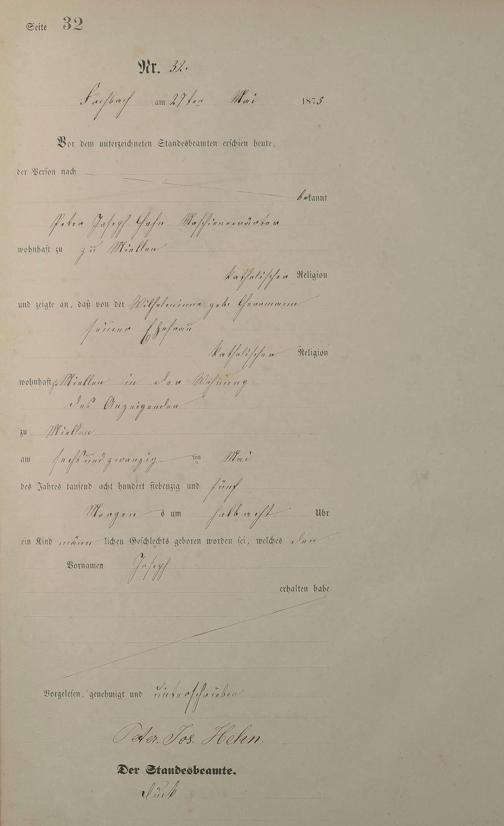 Seite 32
Nr. 32.
Fachbach am 27ten Mai 1875
Vor dem unterzeichneten Standesbeamten erschien heute,
der Person nach
bekannt
Peter Joseph
wohnhaft zu zu Miellen
katholischer Religion
und zeigte an, daß von der Wilhelmine geb.
seiner Ehefrau
katholischer Religion
wohnhaft Miellen in der Wohnung
des Anzeigenden
zu Miellen
am sechsundzwanzig ten Mai
des Jahres tausend acht hundert siebenzig und fünf
Morgens um halb acht Uhr
ein Kind männlichen Geschlechts geboren worden sei, welches den
Vornamen Joseph
erhalten habe
Vorgelesen, genehmigt und unterschrieben
Peter. Jos. Hehn.
Der Standesbeamte.